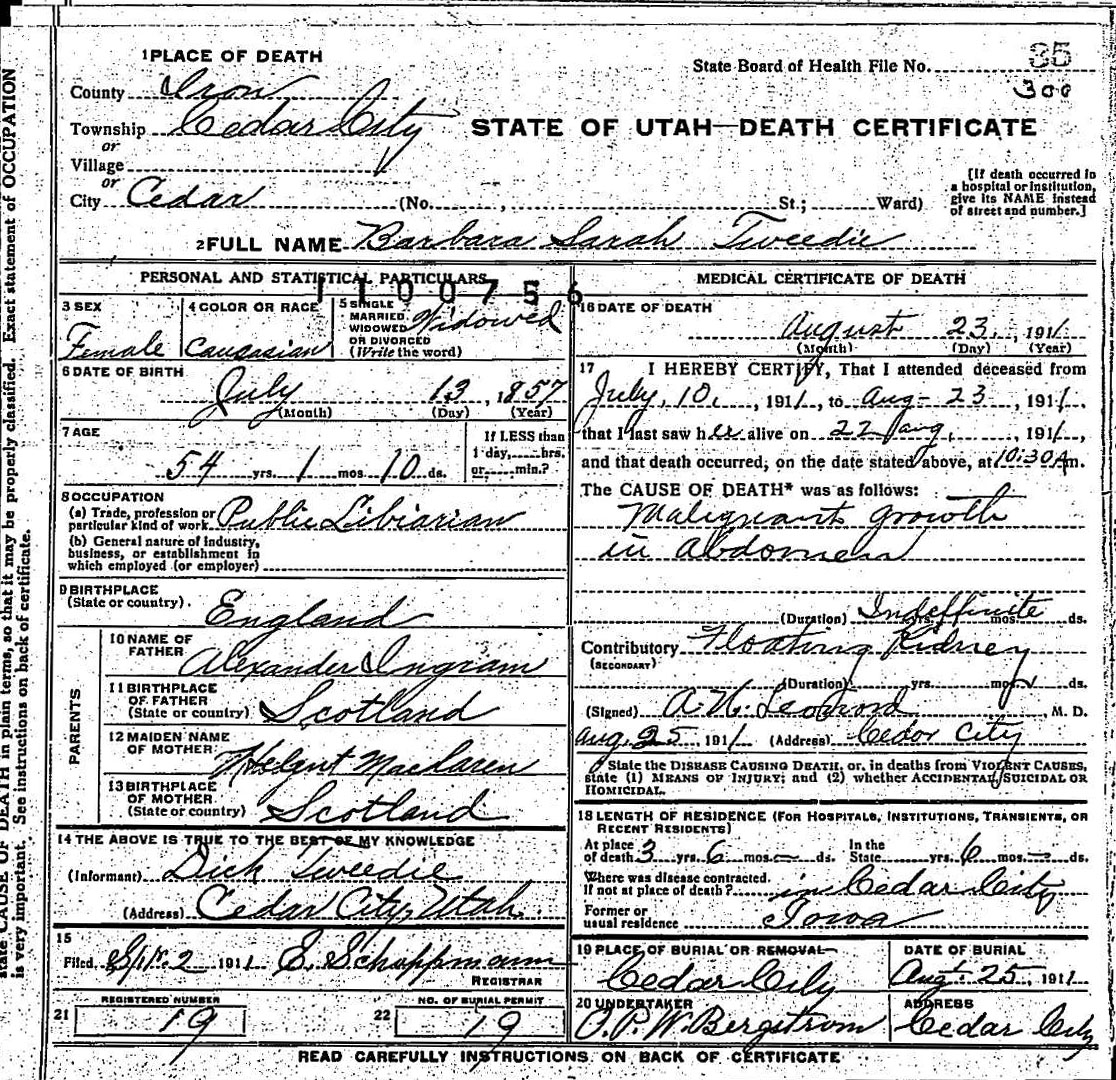 1 PLACE OF DEATH
State Board of Health File No. 35
300
County Iron
Township Cedar City
or
Village
or
City Cedar (No. , St.; Ward)
STATE OF UTAH—DEATH CERTIFICATE
[If death occurred in
a hospital or institution,
give its NAME instead
of street and number.]
2 FULL NAME Barbara Sarah Tweedie
PERSONAL AND STATISTICAL PARTICULARS
1100756
3 SEX
Female
4 COLOR OR RACE
Caucasian
5 SINGLE
MARRIED
WIDOWED
OR DIVORCED
(Write the word)
Widowed
6 DATE OF BIRTH
July 13, 1857
(Month) (Day) (Year)
7 AGE
54 yrs. 1 mos. 10 ds.
If LESS than
1 day, hrs.
or min.?
8 OCCUPATION
(a) Trade, profession or
particular kind of work Public Libiarian
(b) General nature of industry,
business, or establishment in
which employed (or employer)
9 BIRTHPLACE
(State or country)
England
PARENTS
10 NAME OF
FATHER
Alexander Ingram
11 BIRTHPLACE
OF FATHER
(State or country) Scotland
12 MAIDEN NAME
OF MOTHER
MacLaren
13 BIRTHPLACE
OF MOTHER
(State or country) Scotland
14 THE ABOVE IS TRUE TO THE BEST OF MY KNOWLEDGE
(Informant) Dick Tweedie
(Address) Cedar City, Utah.
15
Filed 2 1911 E. Schoppmann
REGISTRAR
REGISTERED NUMBER
21 19
NO. OF BURIAL PERMIT
22 19
MEDICAL CERTIFICATE OF DEATH
16 DATE OF DEATH
August 23, 1911
(Month) (Day) (Year)
17 I HEREBY CERTIFY, That I attended deceased from
July, 10, , 1911, to Aug- 23 , 1911,
that I last saw her alive on 22 aug, , 1911,
and that death occurred, on the date stated above, at 10:30 A m.
The CAUSE OF DEATH* was as follows:
Malignant growth
in abdomen
(Duration) Indeffinite yrs. mos. ds.
Contributory Floating Kidney
(SECONDARY)
(Duration) yrs. mos. ds.
(Signed) A. N. Leonard, M. D.
Aug. 25 1911 (Address) Cedar City
State the DISEASE CAUSING DEATH, or, in deaths from VIOLENT CAUSES,
state (1) MEANS OF INJURY; and (2) whether ACCIDENTAL, SUICIDAL OR
HOMICIDAL.
18 LENGTH OF RESIDENCE (FOR HOSPITALS, INSTITUTIONS, TRANSIENTS, OR
RECENT RESIDENTS)
At place
of death 3 yrs. 6 mos. – ds.
In the
State yrs. 6 mos. – ds.
Where was disease contracted.
If not at place of death? in Cedar City
Former or
usual residence Iowa
19 PLACE OF BURIAL OR REMOVAL
Cedar City
DATE OF BURIAL
Aug. 25, 1911
20 UNDERTAKER
O. P. W. Bergstrom
ADDRESS
Cedar City
READ CAREFULLY INSTRUCTIONS ON BACK OF CERTIFICATE
state CAUSE OF DEATH in plain terms, so that it may be properly classified. Exact statement of OCCUPATION
is very important. See instructions on back of certificate.